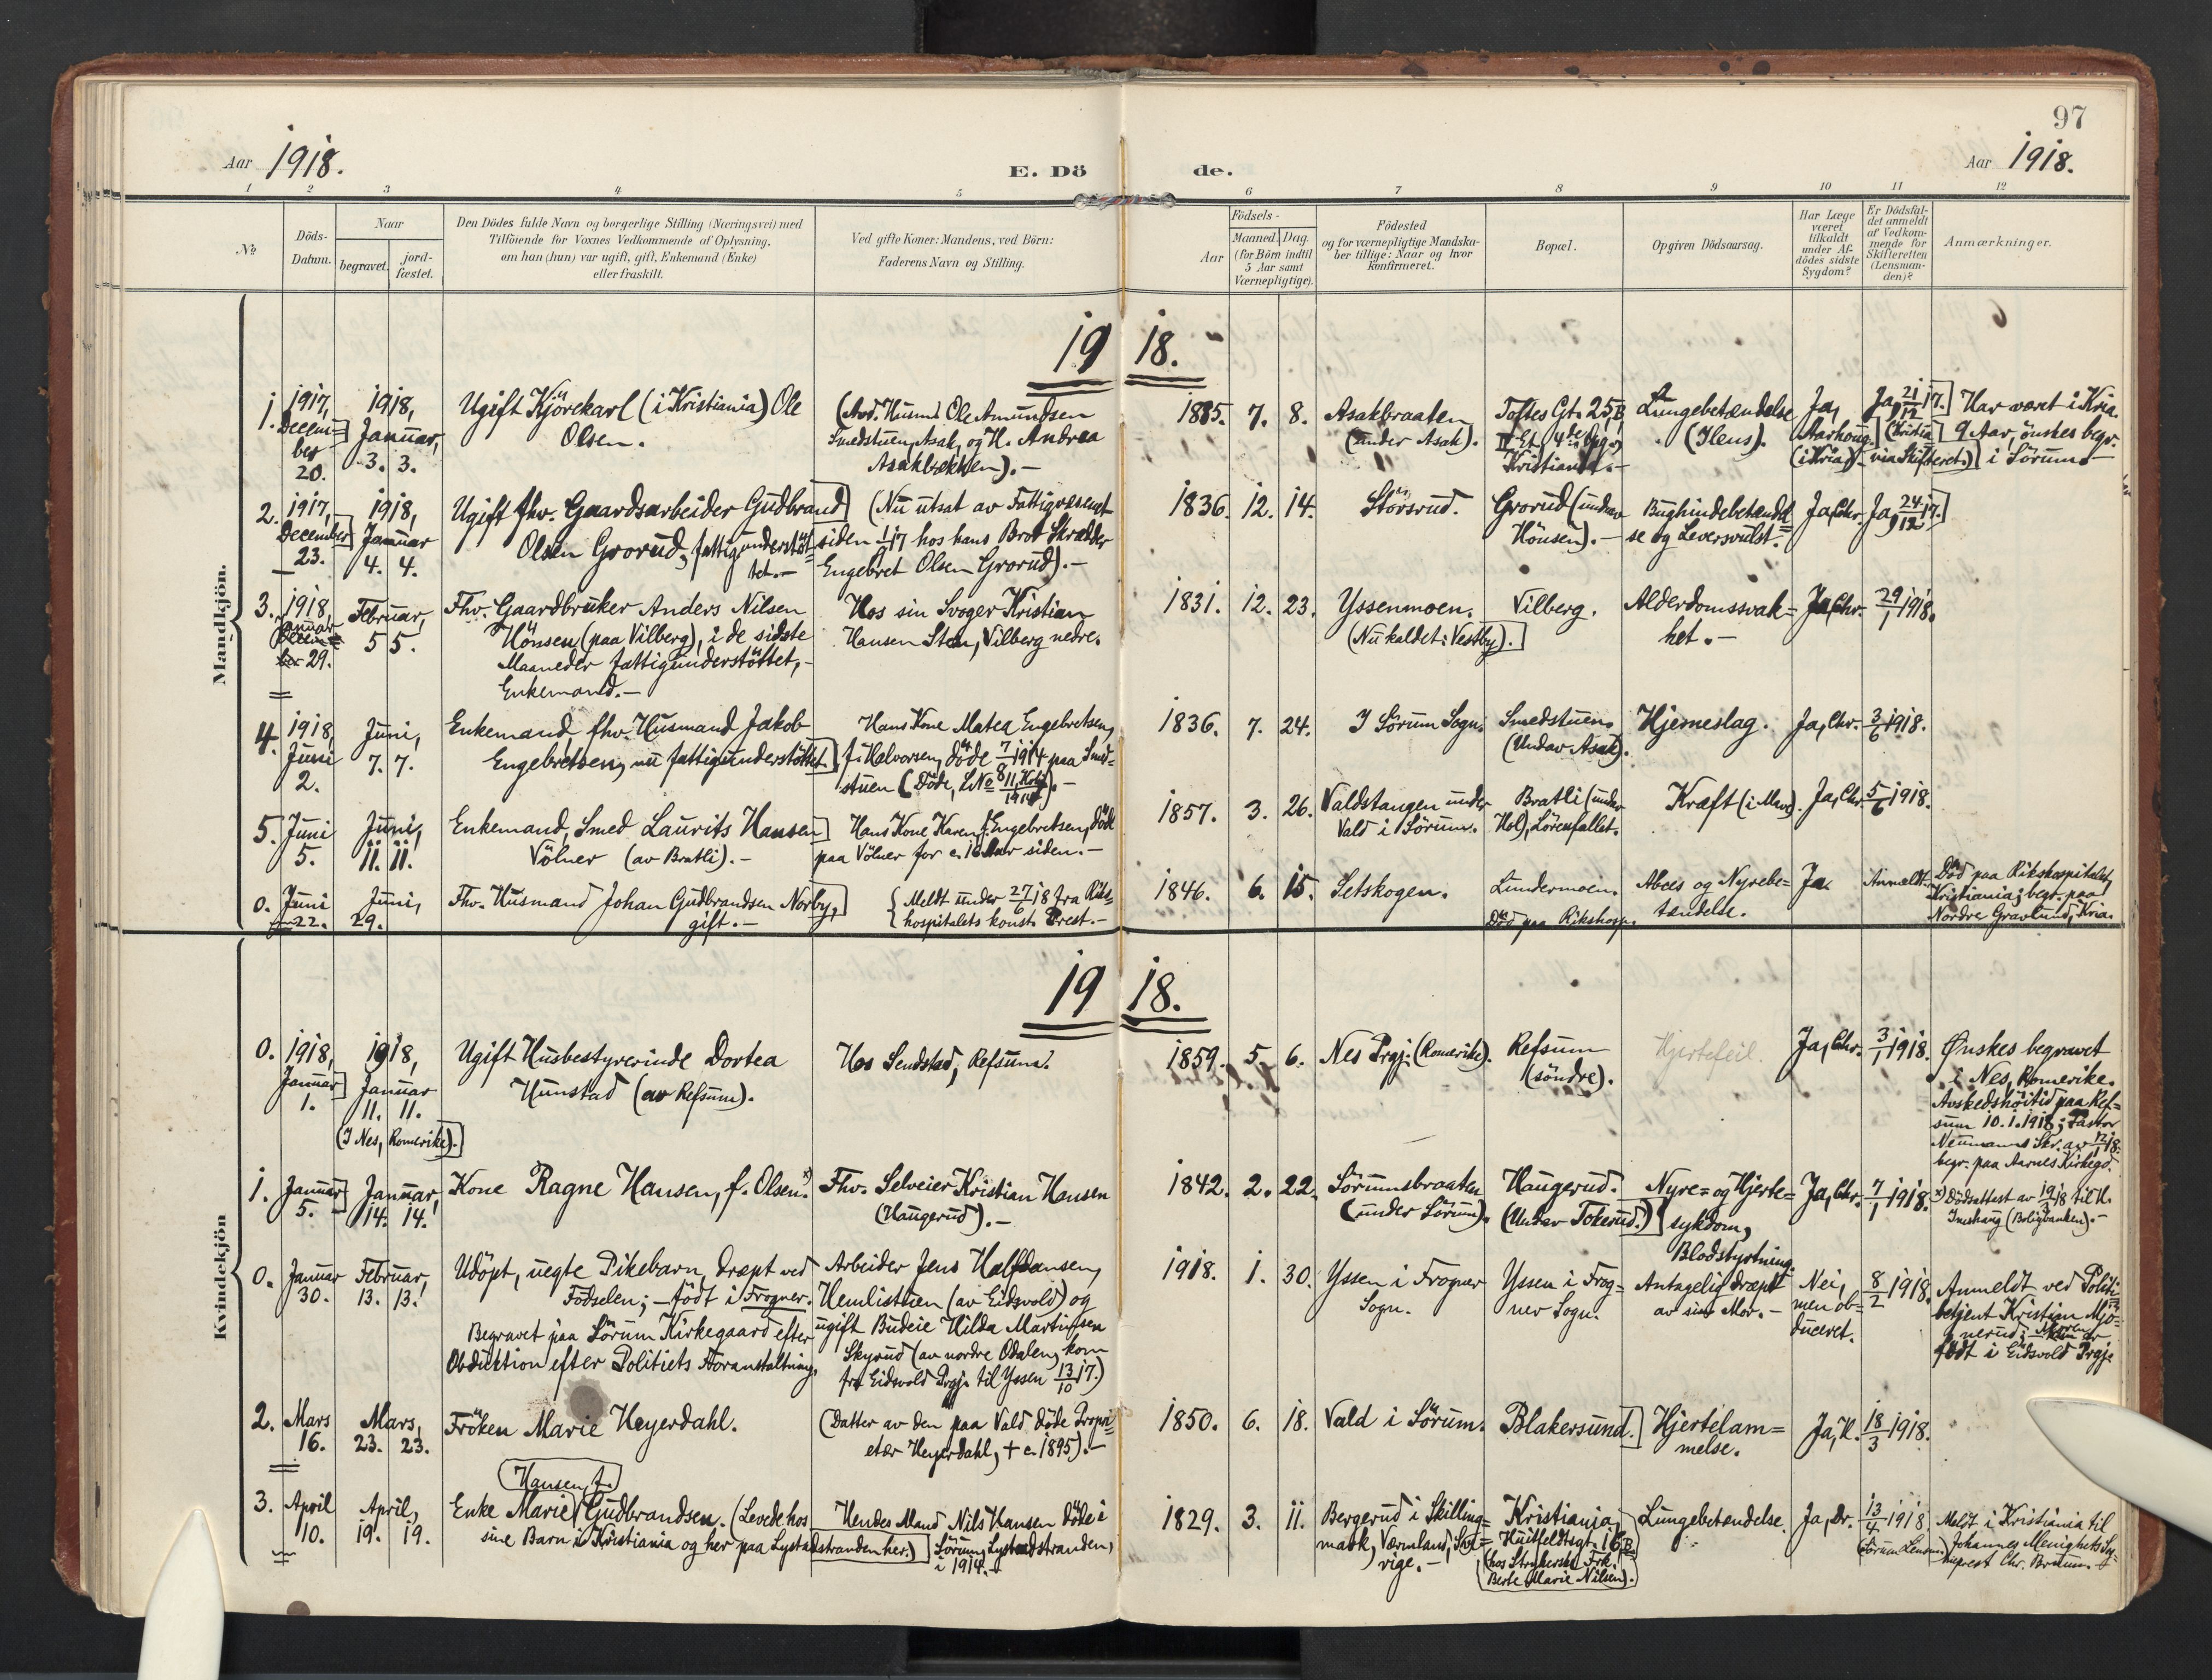 97
Aar 1918.
E. Dö de.
Aar 1918.
1 2 3 4 5 6 7 8 9 10 11 12
No
Döds-
Datum.
Naar
begravet.
jord-
fæstet.
Den Dödes fulde Navn og borgerlige Stilling (Næringsvei) med
Tilföiende for Voxnes Vedkommende af Oplysning,
om han (hun) var ugift, gift, Enkemand (Enke)
eller fraskilt.
Ved gifte Koner: Mandens, ved Börn:
Faderens Navn og Stilling.
Födsels-
Aar
Maaned. Dag.
(for Börn indtil
5 Aar samt
Værnepligtige).
Födested
og for værnepligtige Mandska-
ber tillige: Naar og hvor
konfirmeret.
Bopæl.
Opgiven Dödsaarsag.
Har Læge
været
tilkaldt
under Af-
dödes sidste
Sygdom?
Er Dödsfal-
det anmeldt
af Vedkom-
mende for
Skifteretten
(Lensman-
den)?
Anmærkninger.
Mandkjön.
1918.
1.
1917,
Decem-
ber
20.
1918,
Januar,
3. 3.
Ugift Kjörekarl (i Kristiania) Ole
Olsen.
Ole Amundsen
Smedstuen, Asak, og H. Andrea
Asakbækken).-
1885. 7. 8.
Asakbraaten
(under Asak).
Toftes Gt. 25,B
IV Et., 4de Opg.,
Kristiania.-
Lungebetændelse
(Ileus).
Ja,
Aarhoug
(i Kria)
Ja, 21/12 17.
(Kristia
via Skifteret.)
Har været i Kria.
9 Aar, önskes begr.
i Sörum.-
2.
1917,
December
23.
1918,
Januar
4. 4.
Ugift fhv. Gaardsarbeider Gudbrand
Olsen Grorud, fattigunderstöt=
tet.-
(Nu utsat av Fattigvæsenet
siden 1/1 17 hos hans Bror Skrædder
Engebret Olsen Grorud).-
1836. 12. 14.
Störsrud.
Grorud (under
Hönsen).-
Bughindebetændel
se og Leversvulst.-
Ja, Chr.
Ja, 24/12 17.
3.
1918,
Januar
Decem=
ber 29.
Februar,
5 5.
Fhv. Gaardbruker Anders Nilsen
Hönsen (paa Vilberg), i de sidste
Maaneder fattigunderstöttet,-
Enkemand.-
Hos sin Svoger Kristian
Hansen Sten, Vilberg nedre.
1831. 12. 23.
Yssenmoen.
(Nu kaldet: Vestby).
Vilberg.
Alderdomssvak=
het.-
Ja, Chr.
29/1 1918.
4.
1918,
Juni
2.
Juni,
7. 7.
Enkemand, fhv. Husmand Jakob
Engebretsen, nu fattigunderstöttet.
Hans Kone Matea Engebretsen,
f. Halvorsen, döde 7/8 1914 paa Smed=
stuen (Döde, L.No 11, Kvkj. 1914).-
1836. 7. 24.
I Sörum Sogn.
Smedstuen.
(Under Asak).
Hjerneslag.
Ja, Chr.
3/6 1918.
5. Juni
5.
Juni,
11. 11.
Enkemand, Smed Laurits Hansen
Völner (av Bratli).-
Hans Kone Karen f. Engebretsen, döde
paa Völner for c. 16 Aar siden.-
1857. 3. 26.
Valdstangen under
Vald i Sörum.
Bratli (under
Hol), Sörenfallet.
Kræft (i Mave).
Ja, Chr.
5/6 1918.
0. Juni
22.
Juni,
29.
Fhv. Husmand Johan Gudbrandsen Norby,
gift.-
Meldt under 27/6 18 fra Riks=
hospitalets konst. Prest.-
1846. 6. 15.
Setskogen.
Lundermoen.
Död paa Rikshosp.
Abces og Nyrebe=
tændelse.
Ja.
Anmeldt.
Död paa Rikshospitalet,
Kristiania; begr. paa
Nordre Gravlund, Kria.
Kvindekjön
1918.
0. 1918,
Januar
1.
1918,
Januar
11. 11.
(I Nes, Romerike).
Ugift Husbestyrerinde Dortea
Hunstad (av Refsum).
Hos Sendstad, Refsum.
1859. 5. 6.
Nes Prgj. (Romerike).
Refsum
(söndre).
Hjertefeil.
Ja, Chr.
3/1 1918.
Önskes begravet
i Nes, Romerike.
Avskedshöitid paa Ref=
sum 10.1.1918; Pastor
Neumanns Skr. av 12/1 18.
begr. paa Aarnes Kirkegd.
1. Januar
5.
Januar,
14. 14.
Kone Ragne Hansen, f. Olsen. x)
Fhv. Selveier Kristian Hansen
(Haugerud).-
1842. 2. 22.
Sörumsbraaten
(under Sörum).
Haugerud.
(Under Tokerud.)
Nyre= og Hjerte=
sykdom,
Blodstyrtning.
Ja, Chr.
7/1 1918.
x) Dödsattest av 19/3 18 til H.
(Boligbanken).-
0. Januar
30.
Februar,
13. 13.
Udöpt, uegte Pikebarn, dræpt ved
Födselen; - födt i Frogner.
Begravet paa Sörum Kirkegaard efter
Obduktion efter Politiets Foranstaltning.
Arbeider Jens Halfdansen,
Hemlistuen (av Eidsvold) og
ugift Budeie Hilda Martinsen
Skyrud (av nordre Odalen, kom
fra Eidsvold Prgj. til Yssen 13/10 17.)
1918. 1. 30.
Yssen i Frogner
Sogn.
Yssen i Frog=
ner Sogn.
Antagelig dræpt
av sin Mor.-
Nei,
men ob=
duceret.
8/2 1918.
Anmeldt ved Politi=
betjent Kristian Mjö=
nerud; Moren er
födt i Eidsvold Prgj.
2. Mars
16.
Mars,
23. 23.
Fröken Marie Heyerdahl.
(Datter av den paa Vald döde Propri=
etær Heyerdahl, † c. 1895).-
1850. 6. 18.
Vald i Sörum.
Blakersund.
Hjertelam=
melse.
Ja, H.
18/3 1918.
3. April
10.
April,
19. 19.
Hansen, f.
Enke Marie Gudbrandsen. (Levede hos
sine Barn i Kristiania og her paa Lystadstranden her.)
Hendes Mand Nils Hansen döde i
Sörum, Lystadstranden,
i 1914.-
1829. 3. 11.
Bergerud i Skilling=
mark, Värmland, Sve=
rige.-
Kristiania,
Huitfeldtsgt. 16B
(hos Strykerske Frk.
Berte Marie Nilsen).
Lungebetændelse.
Ja, Dr.
13/4 1918.
(Sörum Lensm.)
Meldt i Kristiania til
Johannes Menigheds Sog=
neprest Chr. Bruun.-